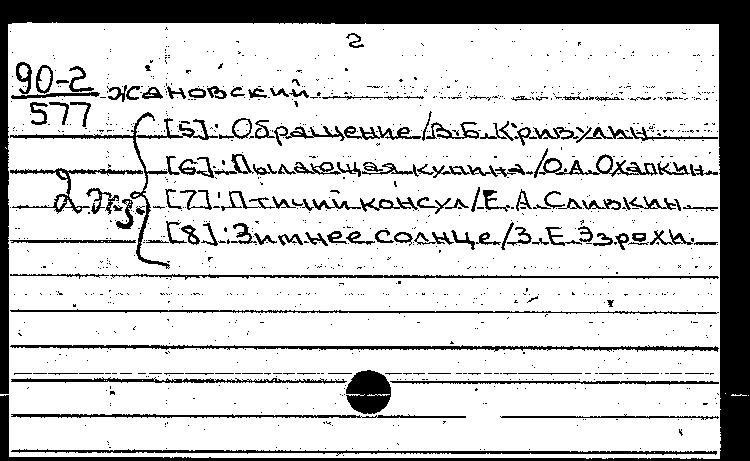 2
90-2
577
жановский.
[5]: Обращение / В.Б. Кривулин.
[6]: Пылающая купина / О.А. Охапкин.
2 экз.
[7]: Птичий консул / Е.А. Сливкин.
[8]: Зимнее солнце / З.Е. Эзрохи.